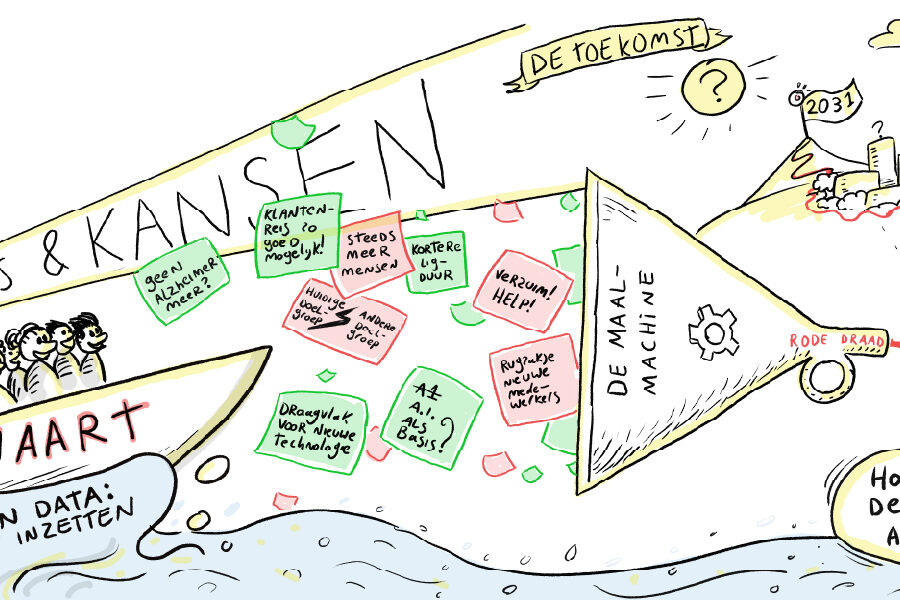 DE TOEKOMST
?
2031
?
S & KANSEN
geen
Alzheimer
meer?
KLANTEN-
REIS zo
goed
mogelijk!
STEEDS
MEER
MENSEN
KORTERE
LIG-
DUUR
VERZUIM!
HELP!
HUIDIGE
DOEL-
GROEP
ANDERE
DOEL-
GROEP
Rugzakje
NIEUWE
MEDE-
WERKERS
DRAAGVLAK
VOOR NIEUWE
TECHNOLOGIE
A1
A.I.
ALS
BASIS?
DE MAAL-
MACHINE
RODE DRAAD
VAART
N DATA:
INZETTEN
HO
DE
A